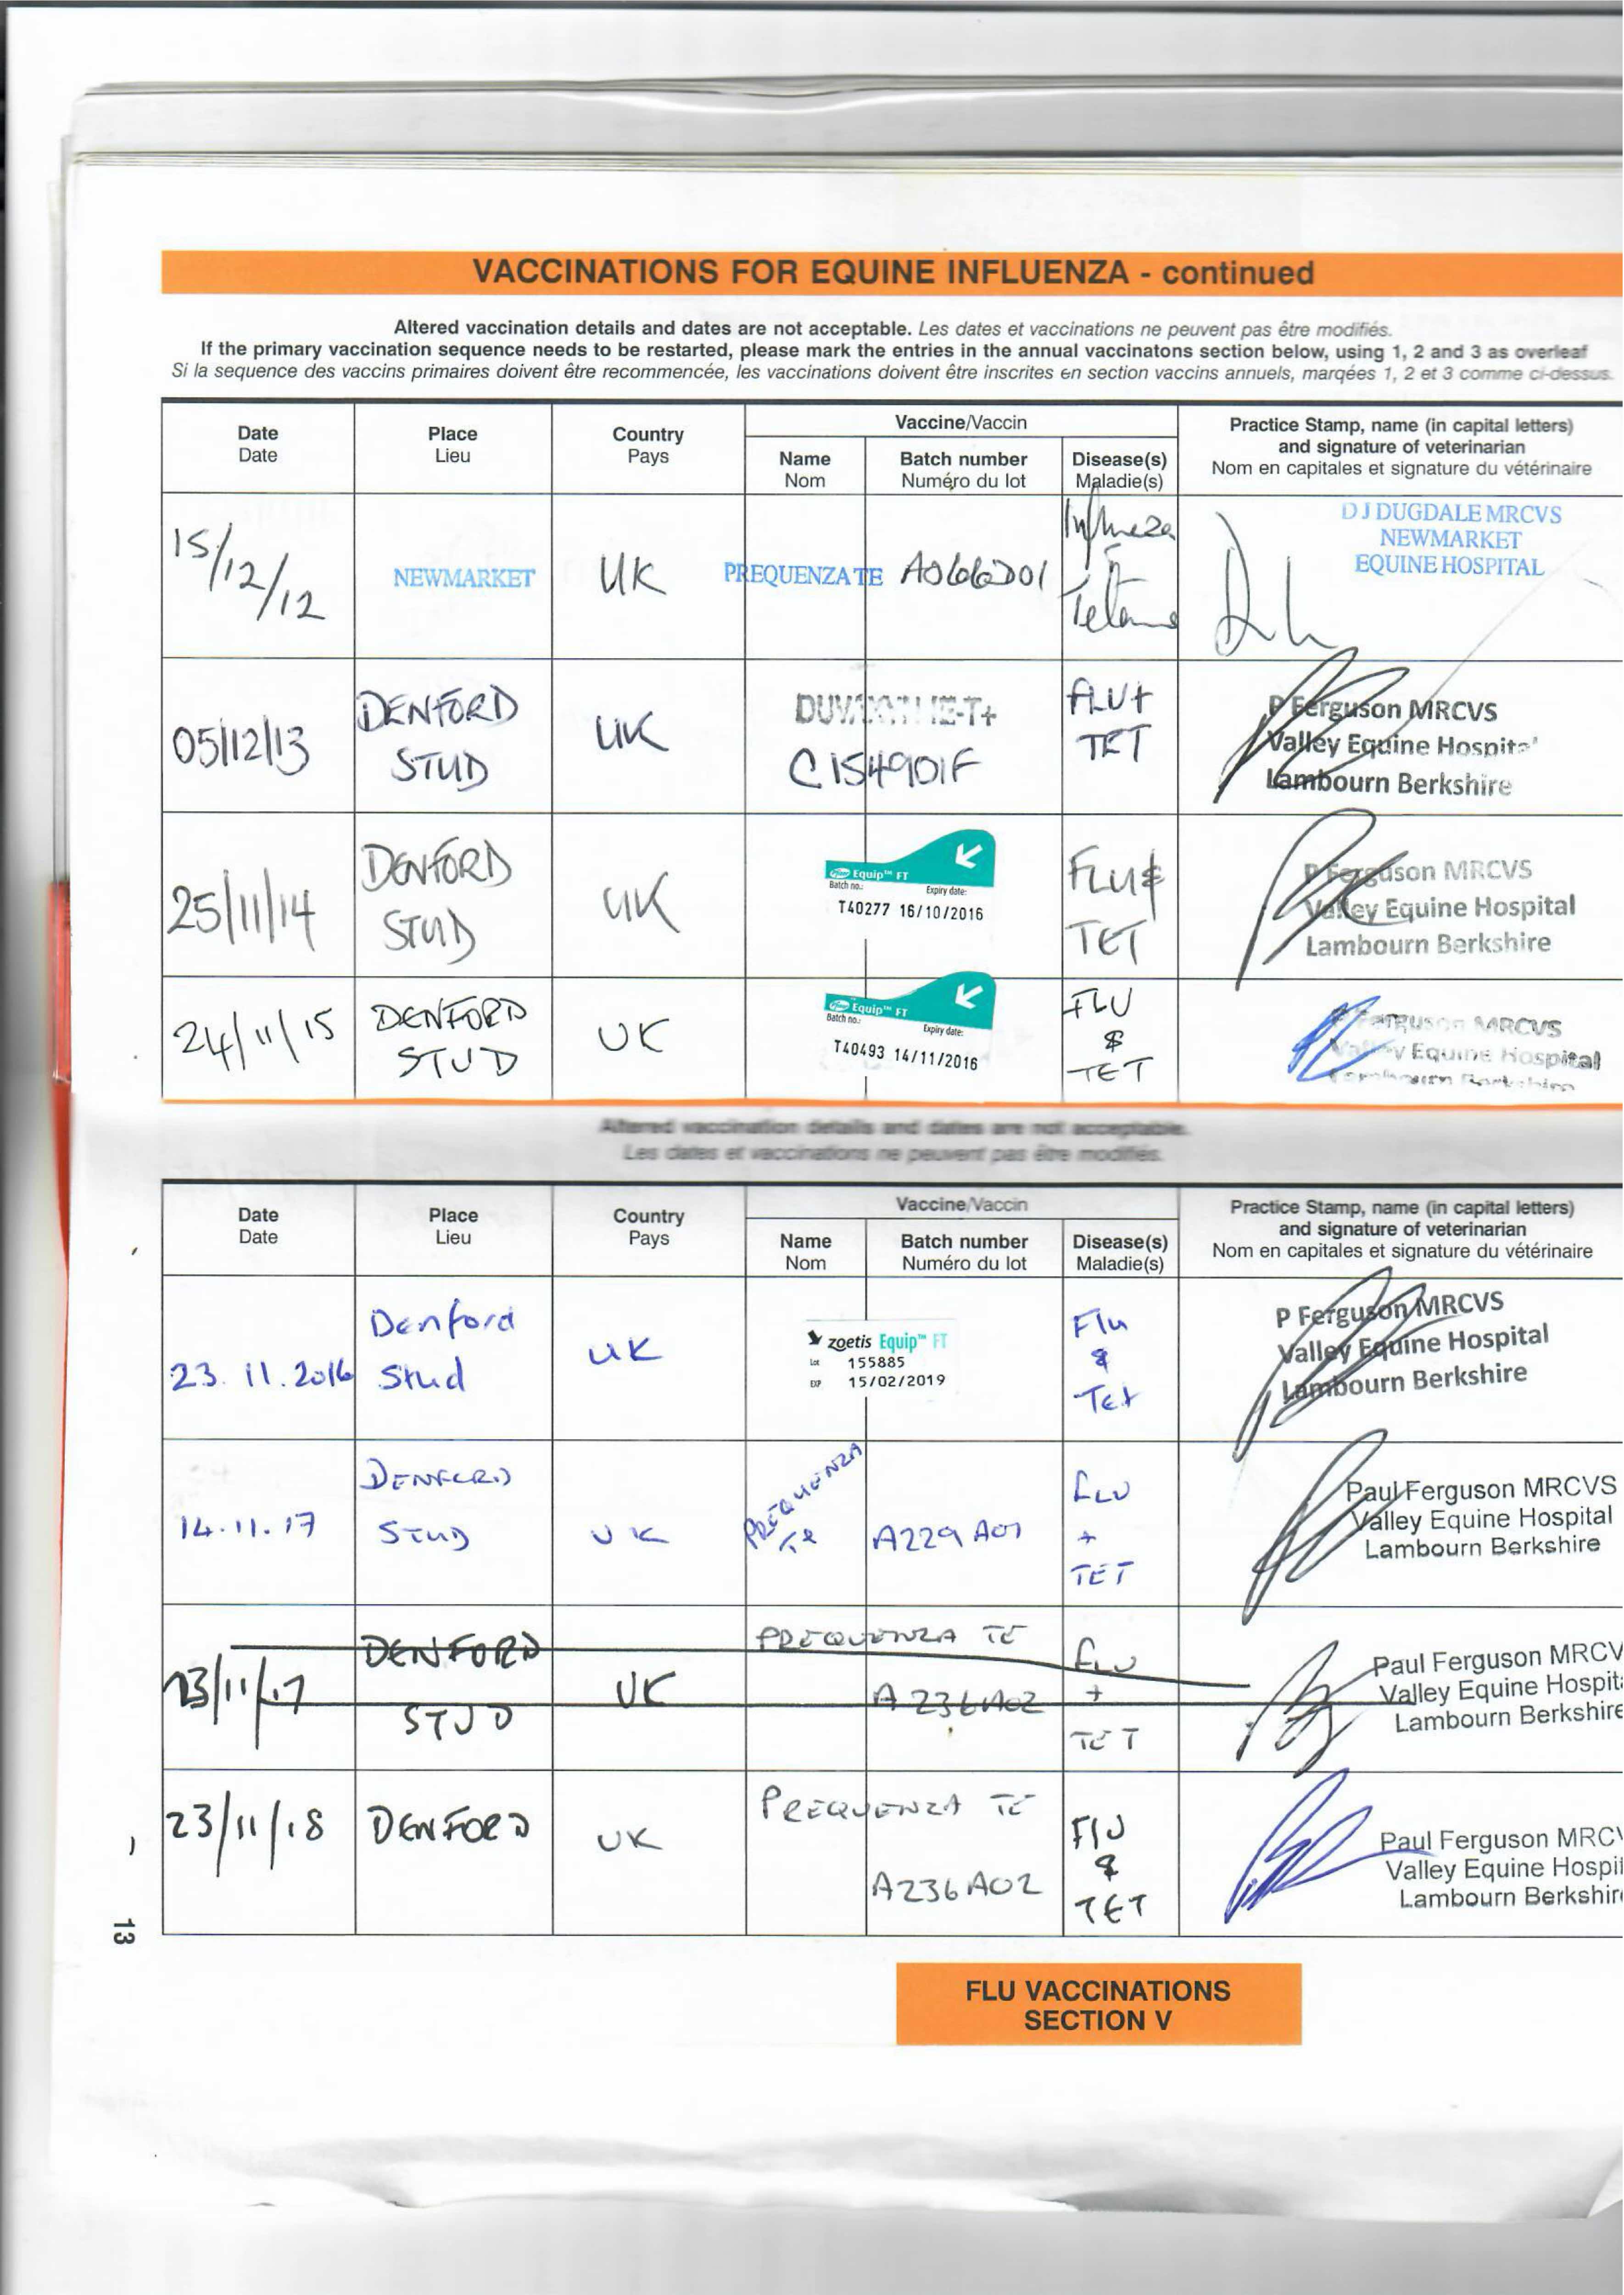 VACCINATIONS FOR EQUINE INFLUENZA - continued
Altered vaccination details and dates are not acceptable. Les dates et vaccinations ne peuvent pas être modifiés.
If the primary vaccination sequence needs to be restarted, please mark the entries in the annual vaccinatons section below, using 1, 2 and 3 as overleaf
Si la sequence des vaccins primaires doivent être recommencée, les vaccinations doivent être inscrites en section vaccins annuels, marqées 1, 2 et 3 comme ci-dessus.
Date
Date
Place
Lieu
Country
Pays
Vaccine/Vaccin
Name
Nom
Batch number
Numéro du lot
Disease(s)
Maladie(s)
Practice Stamp, name (in capital letters)
and signature of veterinarian
Nom en capitales et signature du vétérinaire
15/12/12
NEWMARKET
UK
PREQUENZA TE
A066D01
D J DUGDALE MRCVS
NEWMARKET
EQUINE HOSPITAL
05/12/13
DENFORD
STUD
UK
C154901F
FLU+
TET
P Ferguson MRCVS
Valley Equine Hospital
Lambourn Berkshire
25/11/14
DENFORD
STUD
UK
Pfizer Equip™ FT
Batch no.:
Expiry date:
T40277 16/10/2016
FLU &
TET
P Ferguson MRCVS
Valley Equine Hospital
Lambourn Berkshire
24/11/15
DENFORD
STUD
UK
Pfizer Equip™ FT
Batch no.:
Expiry date:
T40493 14/11/2016
FLU
&
TET
P Ferguson MRCVS
Valley Equine Hospital
Lambourn Berkshire
Altered vaccination details and dates are not acceptable.
Les dates et vaccinations ne peuvent pas être modifiés.
Date
Date
Place
Lieu
Country
Pays
Vaccine/Vaccin
Name
Nom
Batch number
Numéro du lot
Disease(s)
Maladie(s)
Practice Stamp, name (in capital letters)
and signature of veterinarian
Nom en capitales et signature du vétérinaire
23.11.2016
Denford
Stud
UK
zoetis Equip™ FT
Lot 155885
EXP 15/02/2019
Flu
&
Tet
P Ferguson MRCVS
Valley Equine Hospital
Lambourn Berkshire
14.11.17
DENFORD
STUD
UK
PREQUENZA
TE
A229A01
FLU
+
TET
Paul Ferguson MRCVS
Valley Equine Hospital
Lambourn Berkshire
23/11/17
DENFORD
STUD
UK
PREQUENZA TE
A236A02
FLU
+
TET
Paul Ferguson MRCV
Valley Equine Hospita
Lambourn Berkshire
23/11/18
DENFORD
UK
PREQUENZA TE
A236A02
FLU
&
TET
Paul Ferguson MRCV
Valley Equine Hospit
Lambourn Berkshir
13
FLU VACCINATIONS
SECTION V